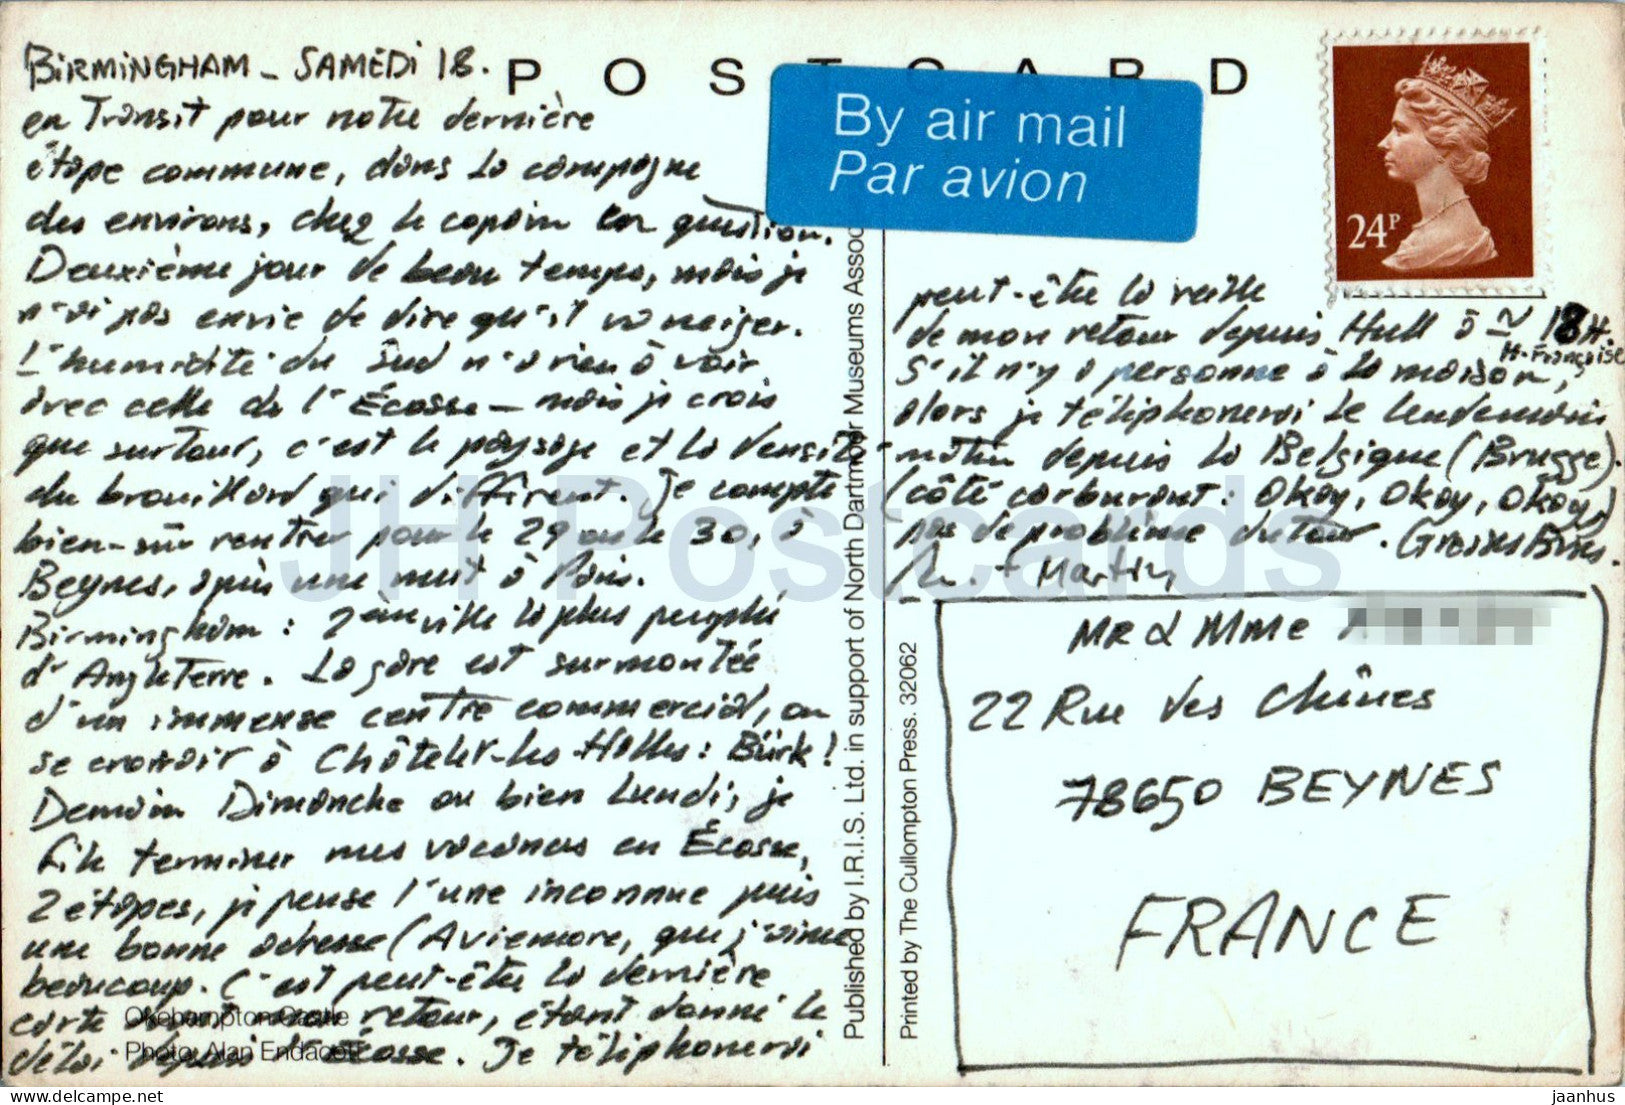 BIRMINGHAM - SAMEDI 18.
en Transit pour notre dernière
étape commune, dans la campagne
des environs, chez le copain en question.
Deuxième jour de beau temps, mais je
n'ai pas envie de dire qu'il va neiger.
L'humidité du Sud n'a rien à voir
avec celle de l'Écosse - mais je crois
que surtout, c'est le paysage et la densité
du brouillard qui diffèrent. Je compte
bien-sûr rentrer pour le 29 ou le 30, à
Beynes, après une nuit à Paris.
Birmingham : 2ème ville la plus peuplée
d'Angleterre. La gare est surmontée
d'un immense centre commercial, on
se croirait à Châtelet-les Halles : Bürk !
Demain Dimanche ou bien Lundi, je
file terminer mes vacances en Écosse,
2 étapes, je pense l'une inconnue puis
une bonne adresse (Aviemore, que j'aime
beaucoup. C'est peut-être la dernière
carte mon retour, étant donné le
délai depuis l'Écosse. Je téléphonerai
Okehampton Castle
Photo: Alan Endacott
POSTCARD
By air mail
Par avion
24P
Published by I.R.I.S. Ltd. in support of North Dartmoor Museums Assoc
Printed by The Cullompton Press. 32062
peut-être la veille
de mon retour depuis Hull à ~ 18H.
H. Française
S'il n'y a personne à la maison,
alors je téléphonerai le lendemain
matin depuis la Belgique (Brugge).
(côté carburant : Okay, Okay, Okay,)
pas de problème du tout. Grosses Bises.
+ Martin
MR & MMe
22 Rue des Chênes
78650 BEYNES
FRANCE
JH Postcards
delcampe.net
jaanhus